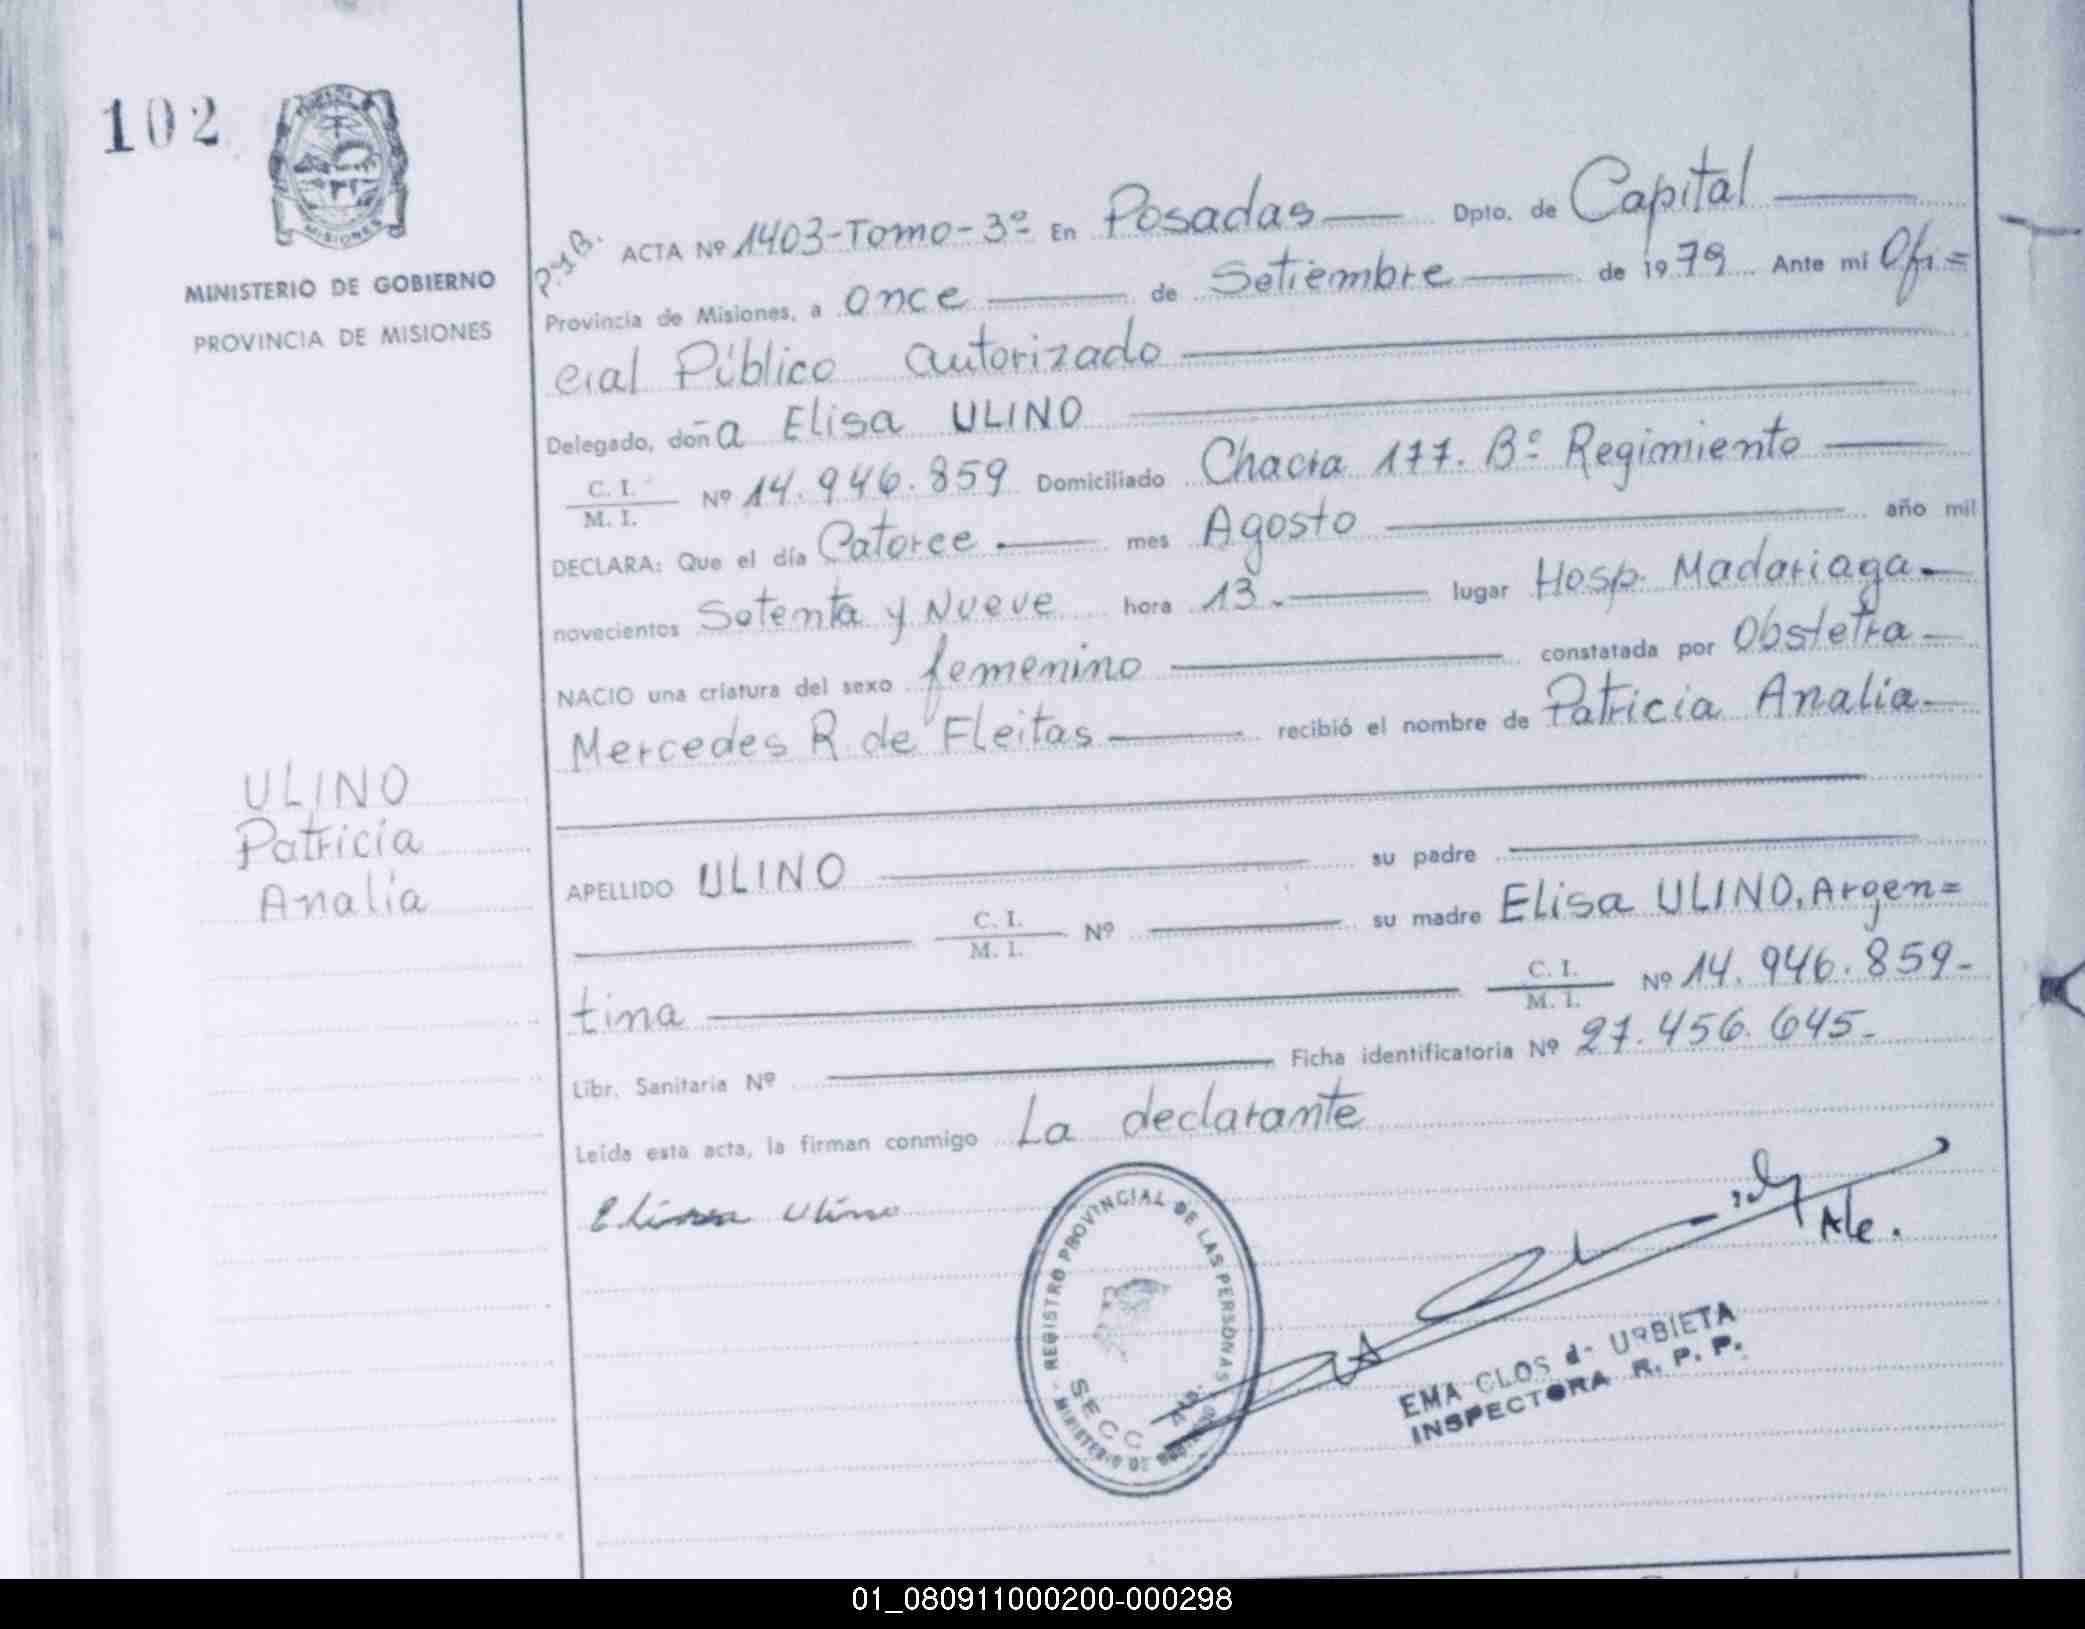 102
MISIONES
MINISTERIO DE GOBIERNO
PROVINCIA DE MISIONES
ULINO
Patricia
Analía
P.y B.
ACTA Nº 1403-Tomo-3º En Posadas Dpto. de Capital
Provincia de Misiones, a once de Setiembre de 1979 Ante mi Ofi=
cial Público autorizado
Delegado, doña Elisa ULINO
C. I.
M. I. Nº 14.946.859 Domiciliado Chacra 177. Bº Regimiento
DECLARA: Que el día Catorce mes Agosto año mil
novecientos Setenta y Nueve hora 13.- lugar Hosp. Madariaga.-
NACIO una criatura del sexo femenino constatada por Obstetra
Mercedes R. de Fleitas recibió el nombre de Patricia Analía
APELLIDO ULINO su padre
C. I.
M. I. Nº su madre Elisa ULINO, Argen=
tina C. I.
M. I. Nº 14.946.859-
Libr. Sanitaria Nº Ficha identificatoria Nº 27.456.645.-
Leída esta acta, la firman conmigo La declarante
Ulino
REGISTRO PROVINCIAL DE LAS PERSONAS
SECC
MINISTERIO DE GOBIERNO
Ale.
EMA CLOS de URBIETA
INSPECTORA R. P. P.
01_080911000200-000298